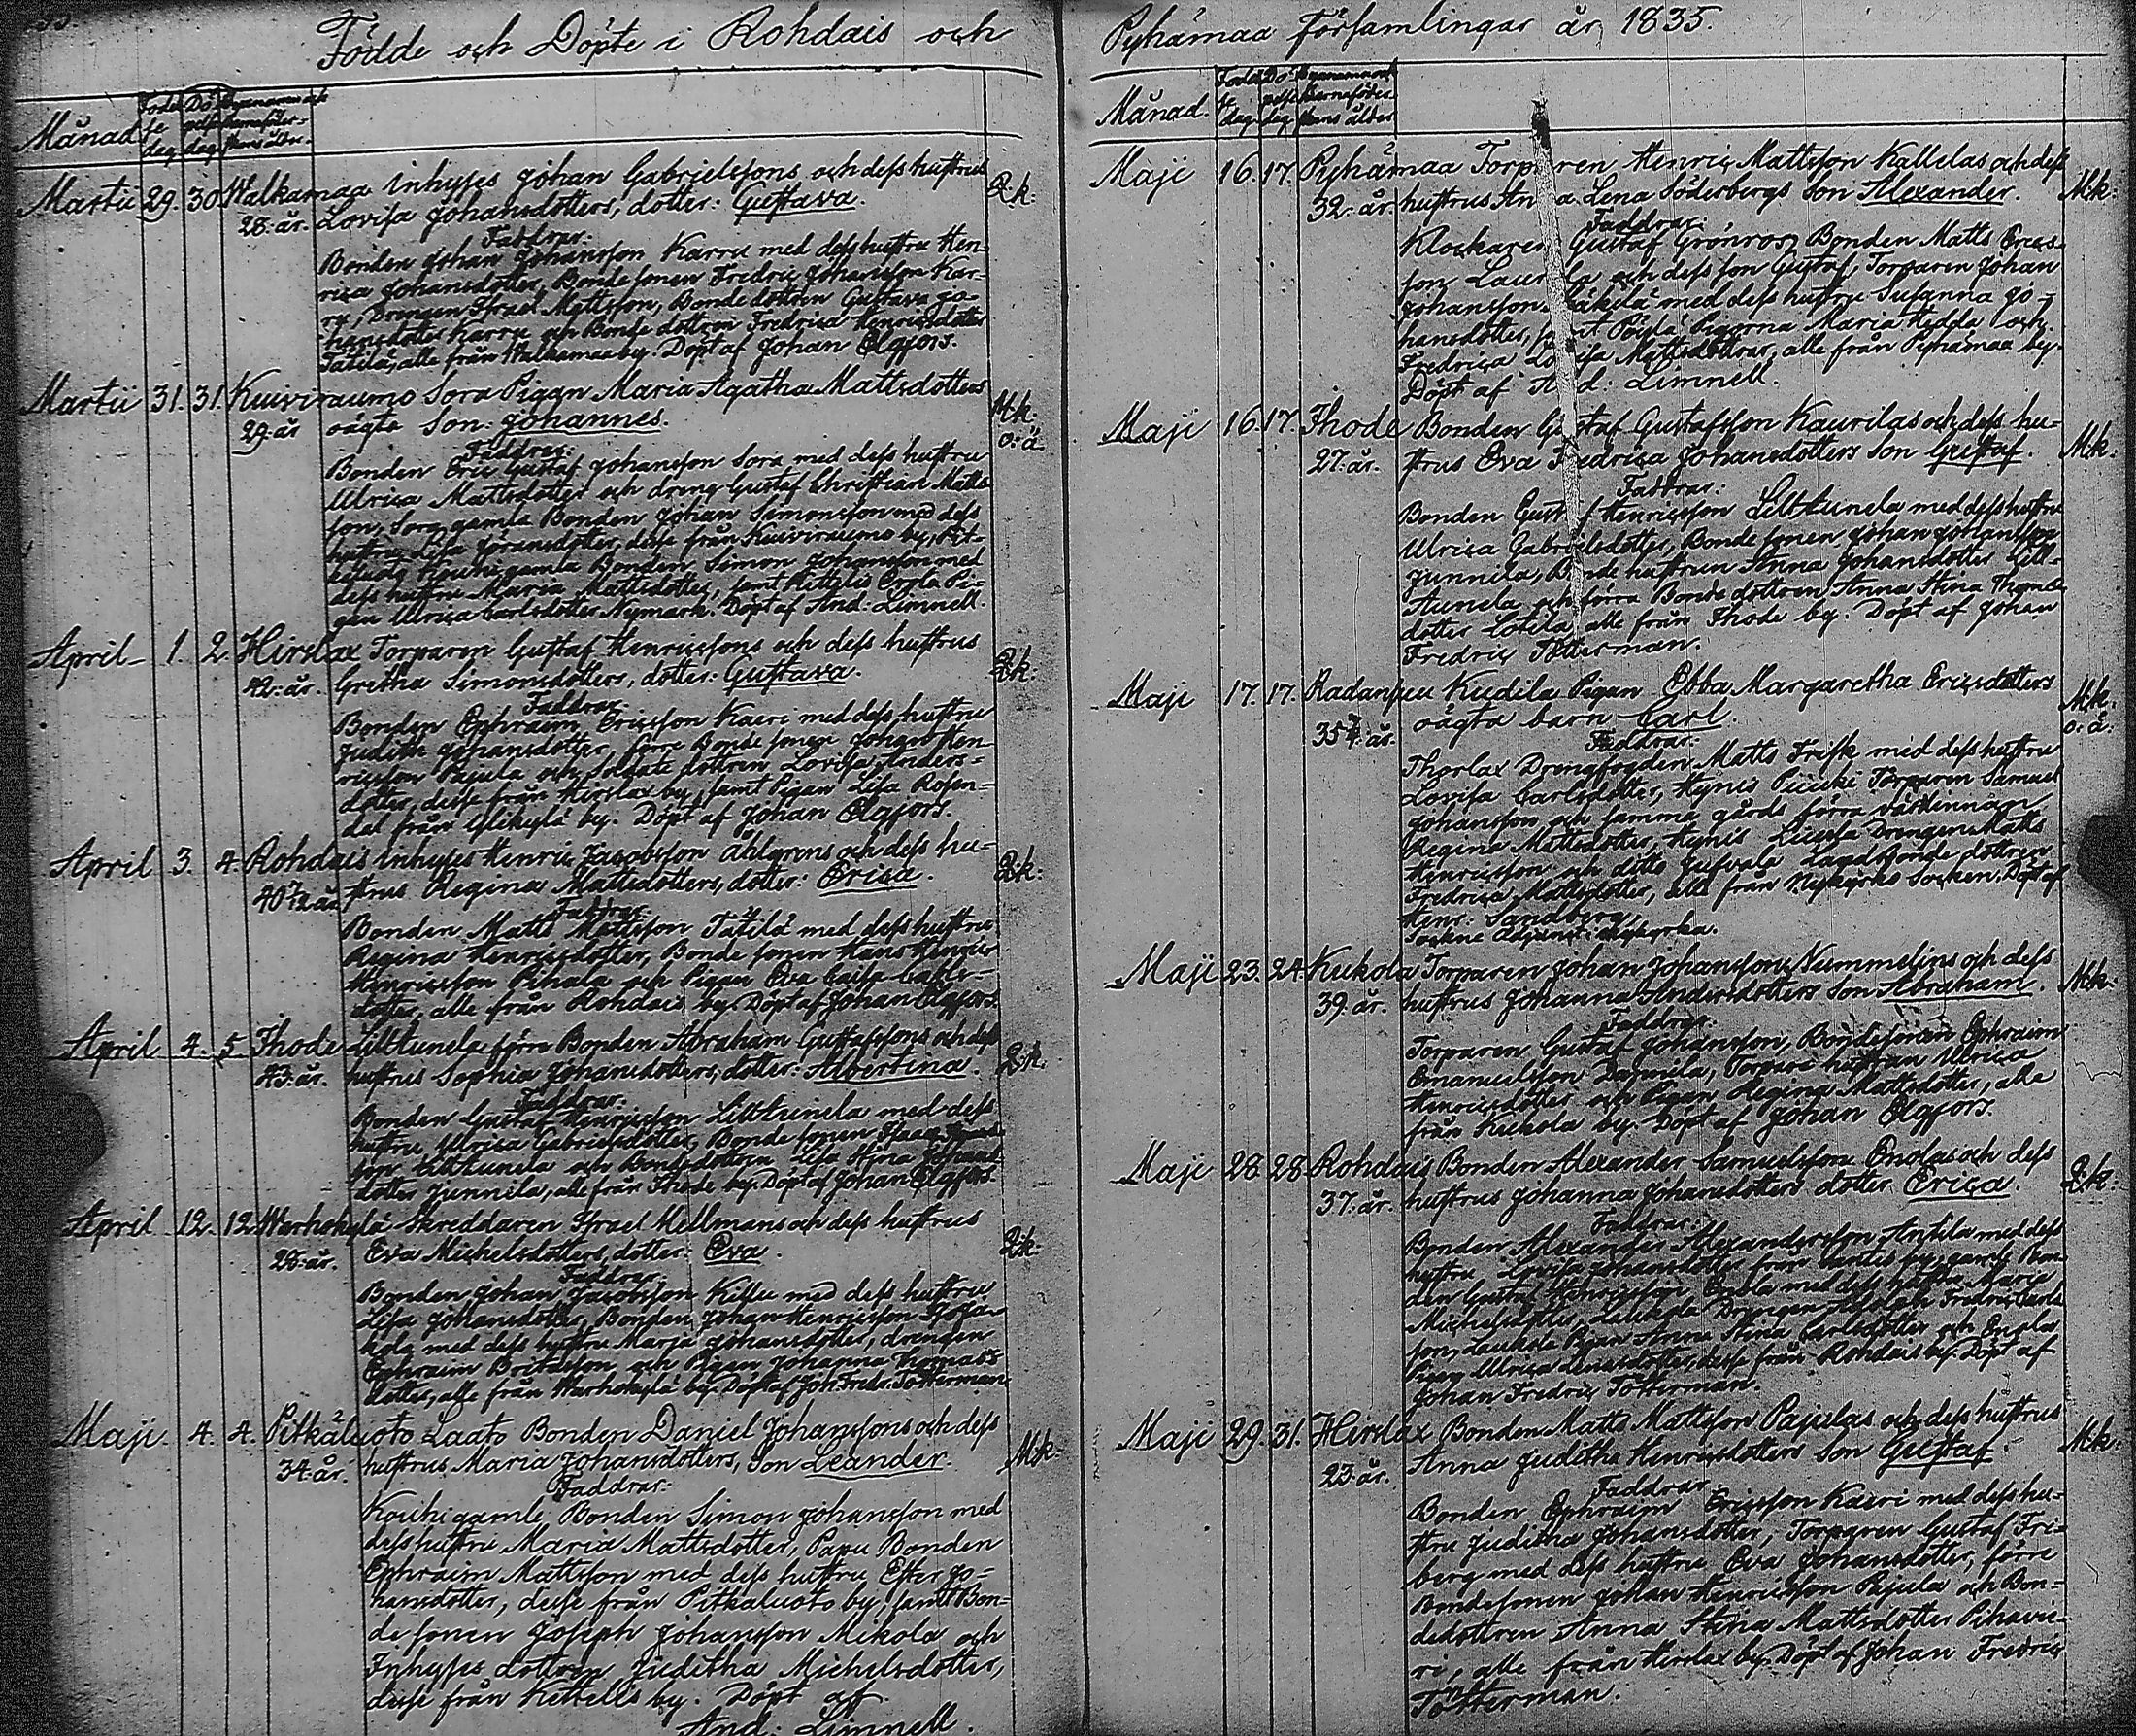 Födde och Döpte i Rohdais och
Månad Födelse dag Döpelse dag
Martii 29. 30. Walkamaa Inhyses Johan Gabrielssons och dess hustrus Q.k:
28. år. Lovisa Johansdotters, dotter: Gustava.
Faddrar:
Bonden Johan Johansson Karru med dess hustru Hen-
rica Johansdotter, Bondesonen Fredric Johansson Kar-
ru, Drengen Israel Mattsson, Bondedottren Gustava Jo-
hansdotter Karru och Bonde dottren Fredrica Henricsdotter
Tätilä, alle från Walkamaa by. Döpt af Johan Elgfors.
Martii 31. 31. Kuiviraumo Sora Pigan Maria Agatha Mattsdotters M.k:
29. år oägta Son: Johannes. o. ä.
Faddrar:
Bonden Eric Gustaf Johansson Sora med dess hustru
Ulrica Mattsdotter och dreng Gustaf Christian Matts-
son, Sora, gamla Bonden Johan Simonsson med dess
hustru Lisa Göransdotter, desse från Kuiviraumo by, Pit-
käluoto Kouhi gamla Bonden Simon Johansson med
dess hustru Maria Mattsdotter, samt Kettelis Pi-
gan Ulrica Carlsdotter Nymark. Döpt af And: Limnell.
April 1. 2. Hirslax Torparen Gustaf Henricssons och dess hustrus Q.k:
42. år. Gretha Simonsdotters, dotter: Gustava.
Faddrar:
Bonden Ephraim Ericsson Kairi med dess hustru
Judith Johansdotter, förre Bonde sonen Johan Hen-
ricsson Pajula och Soldate dottren Lovisa Anders-
dotter, desse från Hirslax by, samt Pigan Lisa Rosen-
dal från Ylikylä by. Döpt af Johan Elgfors.
April 3. 4. Rohdais Inhyses Henric Jacobsson Åhlgrens och dess hu- Q.k:
40 år strus Regina Mattsdotters, dotter: Erica.
Faddrar:
Bonden Matts Mattsson Tätilä med dess hustru
Regina Henricsdotter, Bonde sonen Hans Henric
Henricsson Pihala och Pigan Eva Caisa
dotter, alle från Rohdais by. Döpt af Johan Elgfors.
April 4. 5. Ihode Lilltunela förre Bonden Abraham Gustafssons och dess Q.k.
43. år. hustrus Sophia Johansdotters, dotter: Albertina.
Faddrar:
Bonden Gustaf Henricsson Lilltunela med dess
hustru Ulrica Gabrielsdotter, Bonde sonen Isaac
son Lilltunela och Bondedottren Lisa Stina Johans
dotter Junnila, alle från Ihode by. Döpt af Johan Elgfors.
April 12. 12. Warhokylä Skreddaren Israel Mellmans och dess hustrus Q.k:
28. år. Eva Michelsdotters, dotter: Eva.
Faddrar:
Bonden Johan Jacobsson Killu med dess hustru
Lisa Johansdotter, Bonden Johan Henricsson
kola med dess hustru Maria Johansdotter, drengen
Ephraim och Pigan Johanna Thomas
dotter, alle från Warhokylä by. Döpt af Joh: Fredr: Totterman
Maji. 4. 4. Pitkäluoto Laato Bonden Daniel Johanssons och dess M.k:
34. år. hustrus Maria Johansdotters, Son Leander.
Faddrar:
Kouhi gamle Bonden Simon Johansson med
dess hustru Maria Mattsdotter, Papu Bonden
Ephraim Mattsson med dess hustru Ester Jo-
hansdotter, desse från Pitkäluoto by, samt Bon-
de sonen Joseph Johansson Mikola och
Inhyses dottren Juditha Michelsdotter,
desse från Kettelis by. Döpt af
And: Limnell.
Pyhämaa Församlingar år, 1835.
Månad. Födelse dag Döpelse dag
Maji 16. 17. Pyhämaa Torparen Henric Mattsson Kallelas och dess M.k:
32. år. hustrus Anna Lena Söderbergs Son Alexander.
Faddrar:
Klockaren Gustaf Grönroos, Bonden Matts Erics-
son Laurila och dess son Gustaf, Torparen Johan
Johansson med dess hustru Susanna Jo-
hansdotter, samt Pigorna Maria Hedda och
Fredrica Lovisa Mattsdöttrar, alle från Pyhämaa by.
Döpt af And: Limnell.
Maji 16. 17. Ihode Bonden Gustaf Gustafsson Kaurilas och dess hu- M.k:
27. år. strus Eva Fredrica Johansdotters Son Gustaf.
Faddrar:
Bonden Gustaf Henricsson Lilltunela med dess hustru
Ulrica Gabrielsdotter, Bonde sonen Johan Johansson
Junnila, Bonde hustrun Anna Johansdotter Lill-
tunela och förra Bonde dottren Anna Stina Thomas
dotter Cotila, alle från Ihode by. Döpt af Johan
Fredric Totterman.
Maji 17. 17. Radansuu Kudila Pigan Ebba Margaretha Ericsdotters M.k.
35 år. oägta barn Carl. o. ä:
Faddrar:
Thorlax Drengfogden Matts Frisk med dess hustru
Lovisa Carlsdotter, Hynis Torparen Samuel
Johansson och samma gårds förra värdinnan
Regina Mattsdotter, Hynis Drengen Matts
Henricsson och ditto Landbonde dottren
Fredrica Mattsdotter, alle från Nykyrko Socken. Döpt af
Henr: Sandberg
Sockne Adjunct i Nykyrka.
Maji 23. 24. Kukola Torparen Johan Johansson Nummelins och dess M.k:
39. år. hustrus Johanna Andersdotters Son Abraham.
Faddrar:
Torparen Gustaf Johansson, Bondesonen Ephraim
Emanuelsson Dammila, Torpare hustrun Ulrica
Henricsdotter och Pigan Regina Mattsdotter, alle
från Kukola by. Döpt af Johan Elgfors.
Maji 28. 28. Rohdais Bonden Alexander Samuelsson Enolas och dess Q.k:
37. år. hustrus Johanna Johansdotters dotter Erica.
Faddrar:
Bonden Alexander Alexandersson Anttila med dess
hustru Lovisa Johansdotter från by, gamle Bon-
den Gustaf Henricsson Enola med dess hustru Maria
Michelsdotter, Drengen Adolph Fredric Carls
son, Laukola Pigan Anna Stina Carlsdotter och Enolas
Pigan Ulrica dotter, desse från Rohdais by. Döpt af
Johan Fredric Totterman.
Maji 29. 31. Hirslax Bonden Matts Mattsson Pajulas och dess hustrus M.k:
23. år. Anna Juditha Henricsdotters Son Gustaf.
Faddrar
Bonden Ephraim Ericsson Kairi med dess hu-
stru Juditha Johansdotter, Torparen Gustaf Fri-
berg med dess hustru Eva Johansdotter, förre
Bondesonen Johan Henricsson Pajula och Bon-
dedottren Anna Stina Mattsdotter Pihavu-
ri, alle från Hirslax by. Döpt af Johan Fredric
Totterman.